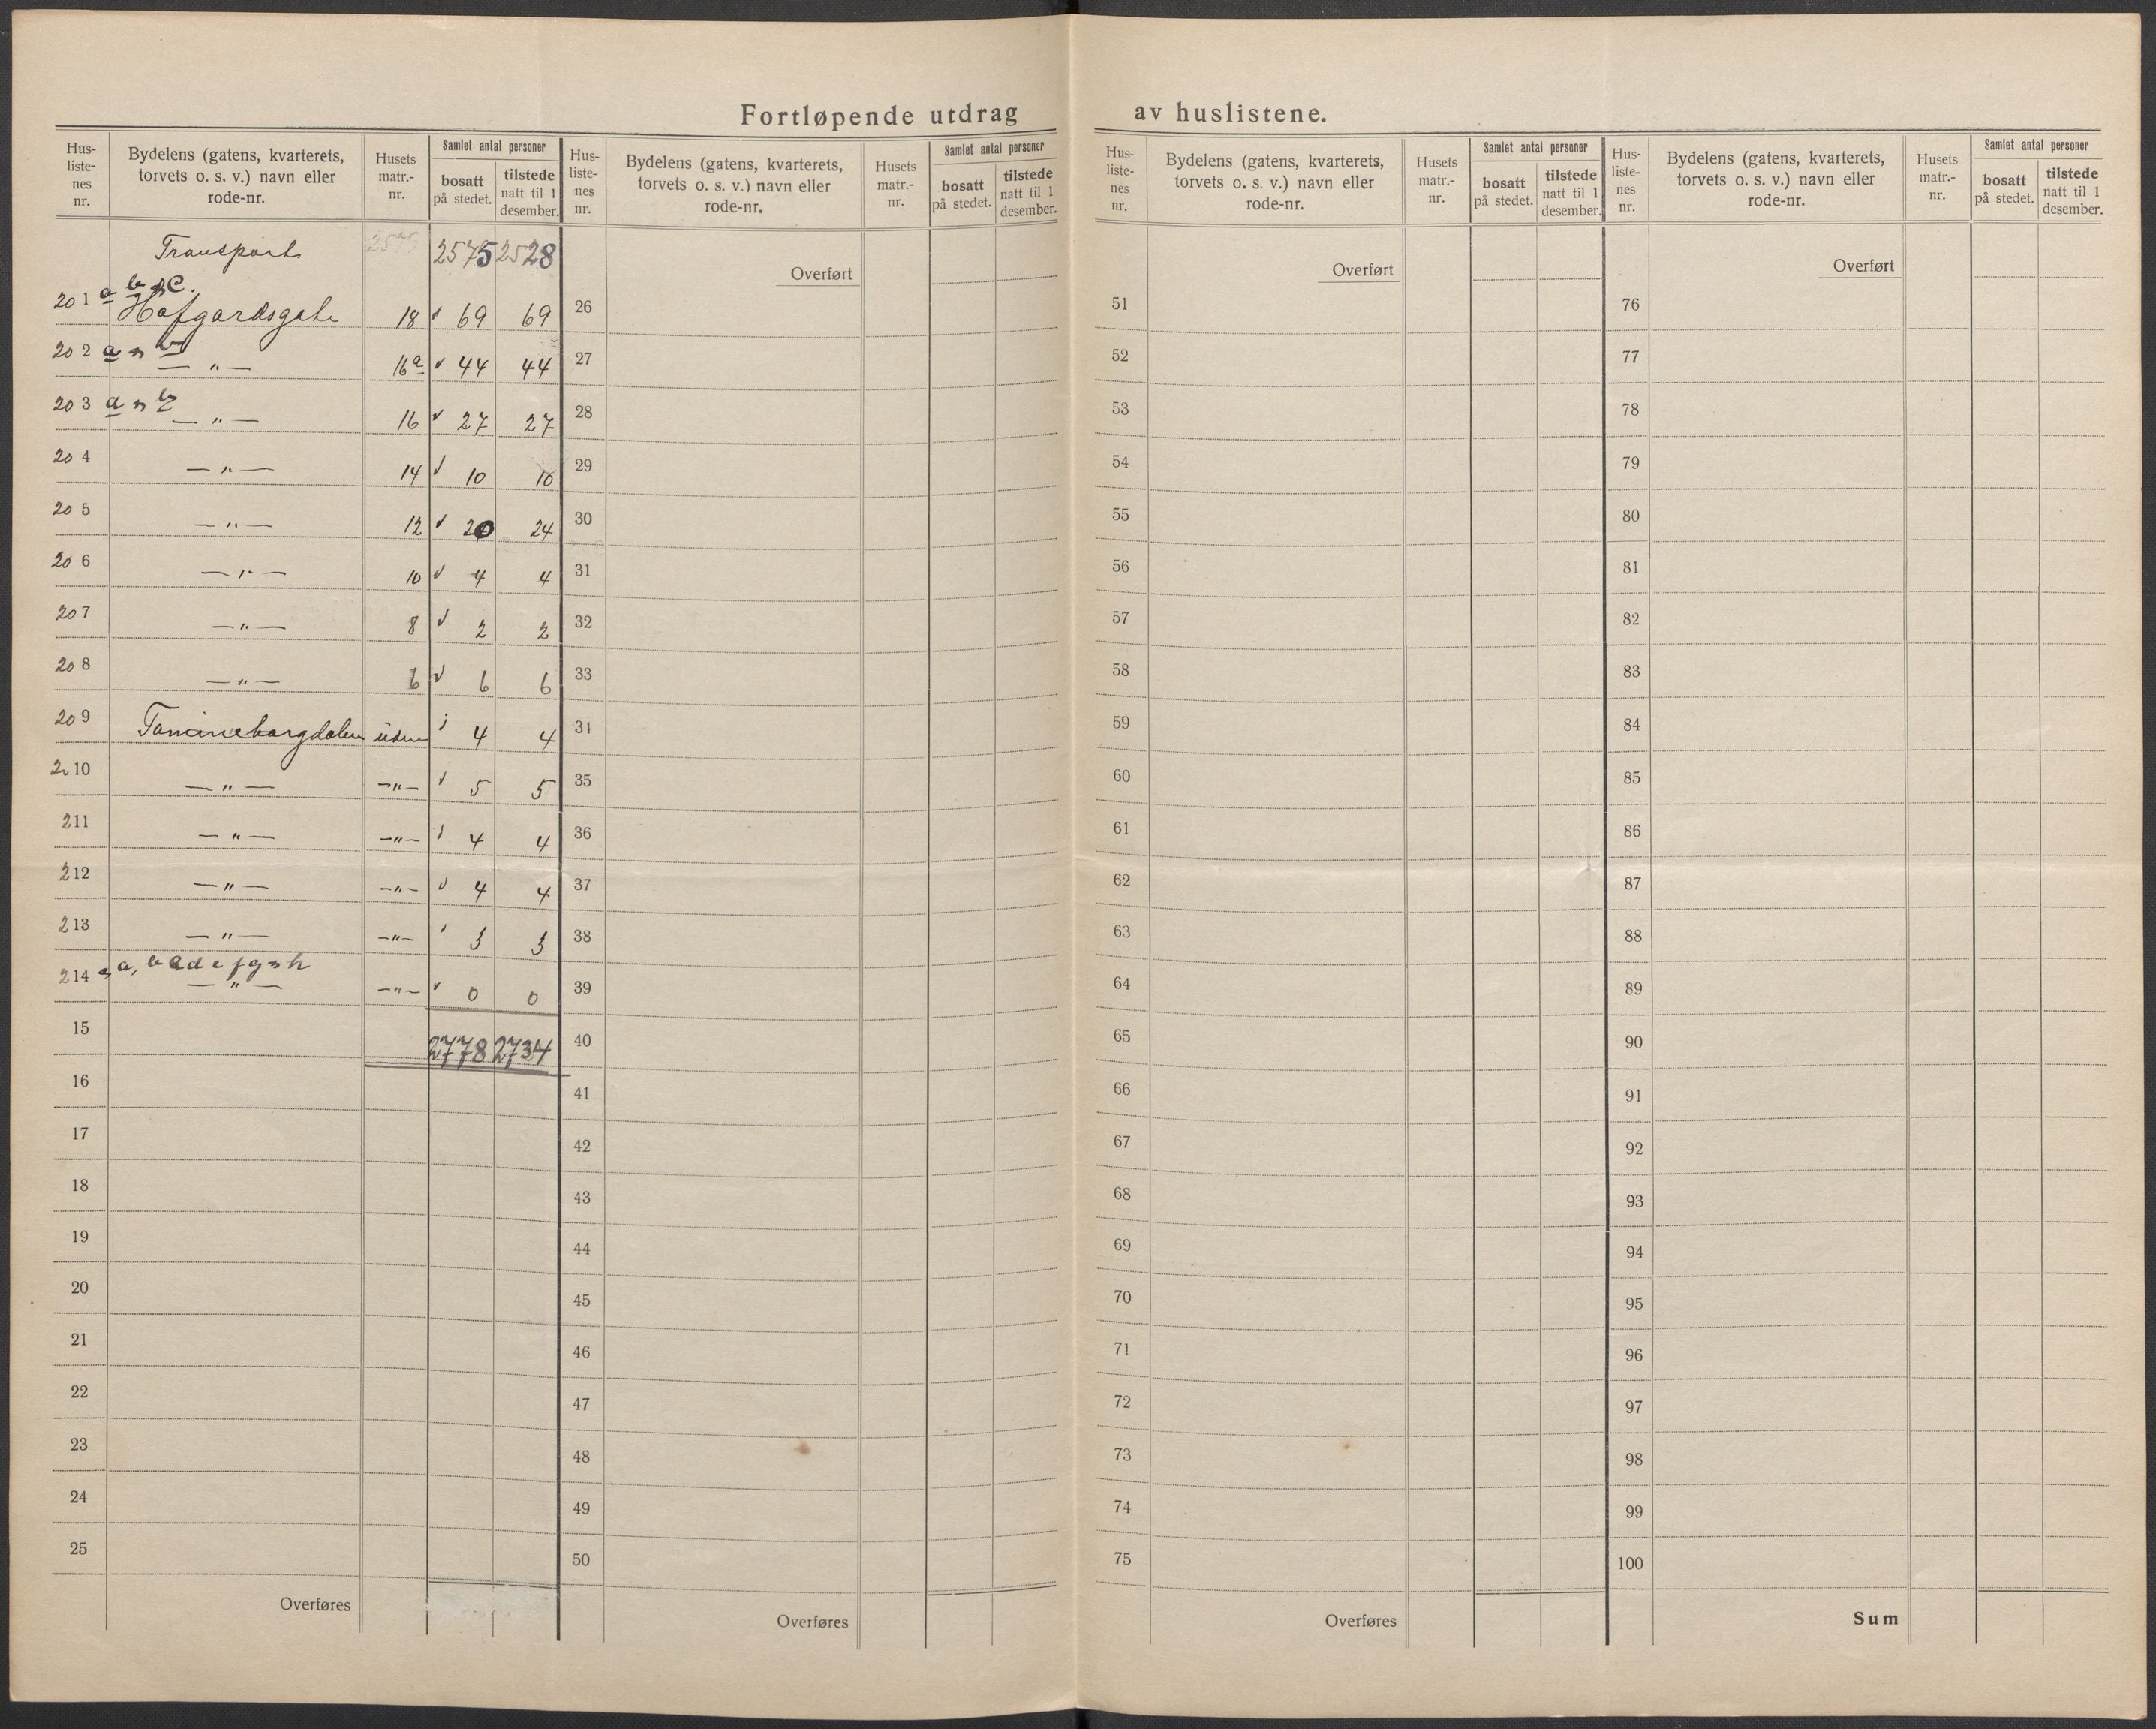 Fortløpende utdrag av huslistene.
Hus-liste-nes nr. | Bydelens (gatens, kvarterets, torvets o. s. v.) navn eller rode-nr. | Husets matr.-nr. | Samlet antal personer | bosatt på stedet. | tilstede natt til 1 desember.
Transport 2575 2528
201 a b n c. Hofgardsgate 18 69 69
202 a n b — " — 16a 44 44
203 a n b — " — 16 27 27
204 — " — 14 10 10
205 — " — 12 20 24
206 — " — 10 4 4
207 — " — 8 2 2
208 — " — 6 6 6
209 4 4
210 — " — — " — 5 5
211 — " — — " — 4 4
212 — " — — " — 4 4
213 — " — — " — 3 3
214 a, b c d e f g n h — " — — " — 0 0
15 2778 2734
16
17
18
19
20
21
22
23
24
25
Overføres
Hus-liste-nes nr. | Bydelens (gatens, kvarterets, torvets o. s. v.) navn eller rode-nr. | Husets matr.-nr. | Samlet antal personer | bosatt på stedet. | tilstede natt til 1 desember.
Overført
26
27
28
29
30
31
32
33
31
35
36
37
38
39
40
41
42
43
44
45
46
47
48
49
50
Overføres
Hus-liste-nes nr. | Bydelens (gatens, kvarterets, torvets o. s. v.) navn eller rode-nr. | Husets matr.-nr. | Samlet antal personer | bosatt på stedet. | tilstede natt til 1 desember.
Overført
51
52
53
54
55
56
57
58
59
60
61
62
63
64
65
66
67
68
69
70
71
72
73
74
75
Overføres
Hus-liste-nes nr. | Bydelens (gatens, kvarterets, torvets o. s. v.) navn eller rode-nr. | Husets matr.-nr. | Samlet antal personer | bosatt på stedet. | tilstede natt til 1 desember.
Overført
76
77
78
79
80
81
82
83
84
85
86
87
88
89
90
91
92
93
94
95
96
97
98
99
100
Sum